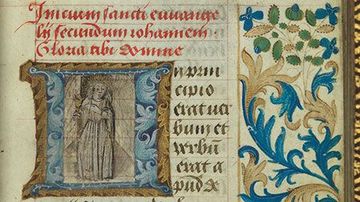 Inicium sancti euuange
lij secundum iohannem
Gloria tibi domine
In prin
cipio
erat uer
bum et
verbū
erat a
pud de